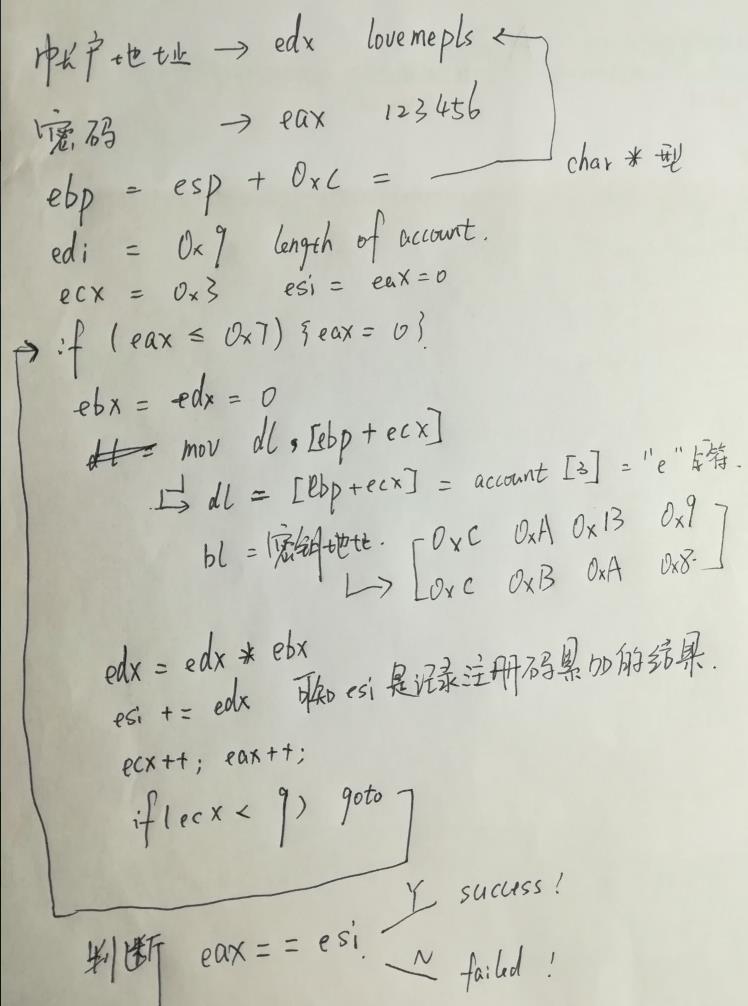 帐户地址 → edx lovemepls
密码 → eax 123456
char * 型
ebp = esp + 0xC =
edi = 0x9 length of account.
ecx = 0x3 esi = eax = 0
if (eax ≤ 0x7) {eax = 0}
ebx = edx = 0
mov dl, [ebp + ecx]
dl = [ebp+ecx] = account [3] = "e"字符.
bl = 密钥地址. 0xC 0xA 0x13 0x9
0xC 0xB 0xA 0x8
edx = edx * ebx
esi += edx 可知 esi 是记录注册码累加的结果.
ecx++; eax++;
if(ecx < 9) goto
Y success!
判断 eax == esi.
N failed!